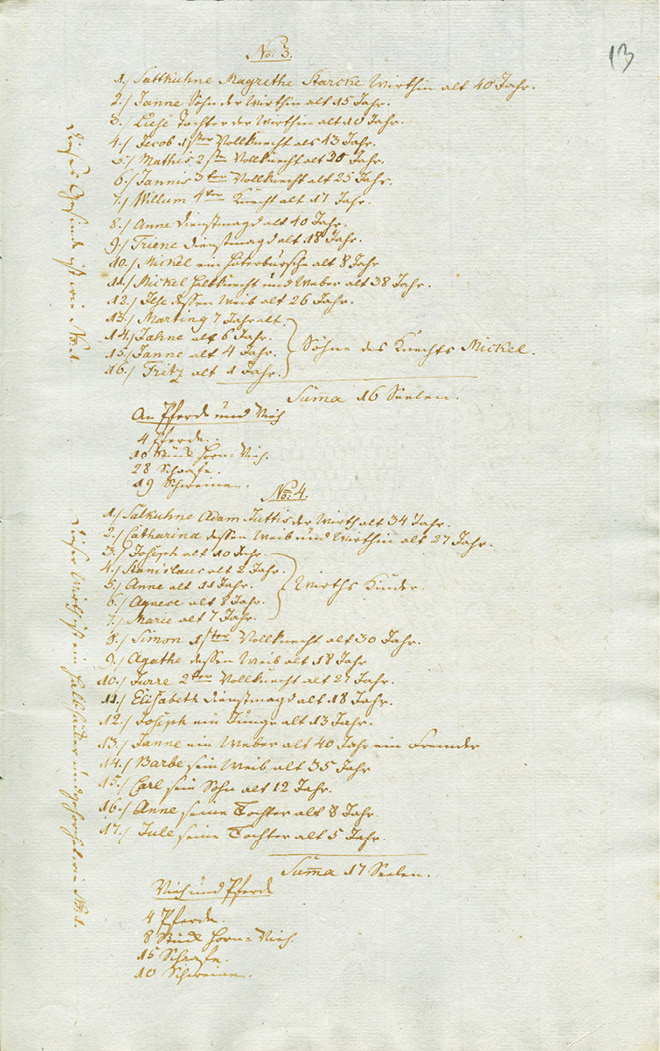 13
No: 3.
1./ Sattkuhne Magrethe Starcke Wirthin alt 40 Jahr.
2./ Janne Sohn der Wirthin alt 15 Jahr.
3./ Liese Tochter der Wirthin alt 10 Jahr.
4./ Jecob 1ster Vollknecht alt 43 Jahr.
5./ Mathis 2ter Vollknecht alt 30 Jahr.
6./ Jannis 3ter Vollknecht alt 25 Jahr.
7./ Willum 4ter Knecht alt 17 Jahr.
8./ Anne Dienstmagd alt 40 Jahr.
9./ Triene Dienstmagd alt 18 Jahr.
10./ Mickel ein Hüterbursche alt 8 Jahr
11./ Mickel Halbknecht und Weber alt 38 Jahr.
12./ Ilse dessen Weib alt 26 Jahr.
13./ Marting 7 Jahr alt.
14./ Jahne alt 6 Jahr.
15./ Janne alt 4 Jahr.
16./ Fritz alt 1 Jahr.
Söhne des Knechts Mickel.
Suma 16 Seelen.
An Pferde und Vieh
4 Pferde.
10 Stück Horn-Vieh.
28 Schaafe.
19 Schweine.
Dieses Gesinde ist wie No: 1.
No: 4.
1./ Satkuhne Adam Juttis der Wirth alt 34 Jahr.
2./ Catharina dessen Weib und Wirthin alt 27 Jahr.
3./ Joseph alt 10 Jahr.
4./ Stanislaus alt 2 Jahr.
5./ Anne alt 11 Jahr.
6./ Agnese alt 8 Jahr.
7./ Marie alt 7 Jahr.
Wirths Kinder.
8./ Simon 1ster Vollknecht alt 30 Jahr.
9./ Agathe dessen Weib alt 18 Jahr
10./ Jurre 2ter Vollknecht alt 27 Jahr.
11./ Elisabeth Dienstmagd alt 18 Jahr.
12./ Joseph ein Junge alt 13 Jahr.
13./ Janne ein Weber alt 40 Jahr ein Fremder
14./ Barbe sein Weib alt 35 Jahr
15./ Carl sein Sohn alt 12 Jahr.
16./ Anne seine Tochter alt 8 Jahr.
17./ Jule seine Tochter alt 5 Jahr.
Suma 17 Seelen.
Vieh und Pferde
4 Pferde.
8 Stück Horn-Vieh.
15 Schaafe.
10 Schweine.
Dieser Wirth ist ein wie No: 1.